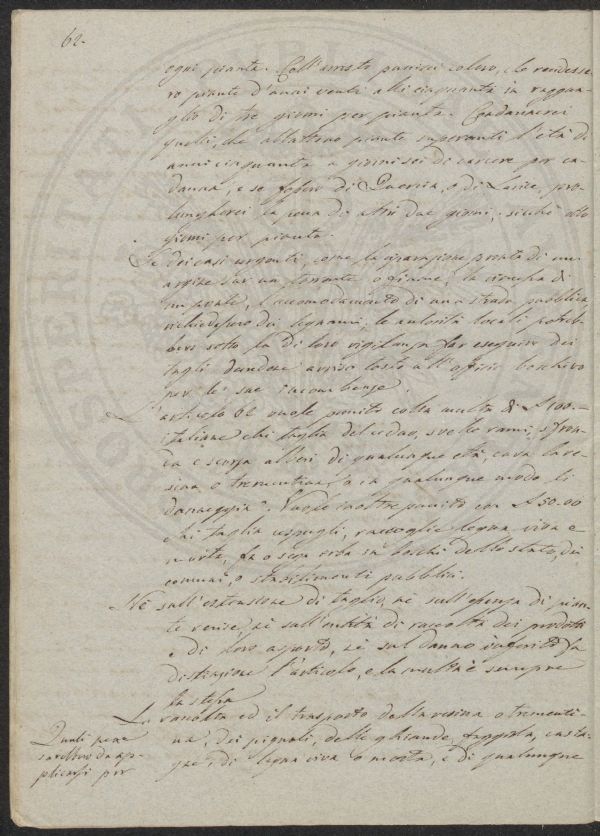 62.
ogni pianta. Coll'arresto punirei coloro, che rendesse-
ro piante d'anni venti alli cinquanta in raggua-
glio di tre giorni per pianta. Condannerei
quelli, che abbattono piante superanti l'età di
anni cinquanta a giorni sei di carcere per ca-
dauna, e se fossero di Quercia, o di Larice, pro-
lungherei la pena di altri due giorni, sicchè otto
giorni per pianta.
Se dei casi urgenti, come la riparazione pronta di un
argine sur un torrente o fiume, la di
un ponte, l'accomodamento di una strada pubblica
richiedessero dei legnami, le autorità locali potreb-
bero sotto la di loro vigilanza far eseguire dei
tagli dandone avviso tosto all'offizio boschivo
per le sue incombenze.
L'articolo 61 vuole punito colla multa di £ 100.=
italiane chi taglia del ceduo, svelle rami, sfron-
da e scorza alberi di qualunque età, cava la re-
sina o trementina, o in qualunque modo li
danneggia. Vuole inoltre punito con £ 50.00
chi taglia cespugli, raccoglie legna viva e
morta, fa o sega erba sù boschi dello stato, dei
comuni, o stabilimenti pubblici.
Nè sull'estensione di taglio, nè sull' di pian-
te recise, nè sull'entità di raccolta dei prodotti
e di loro asporto, nè sul danno inferito fa
distinzione l'articolo, e la multa è sempre
la stessa
La raccolta ed il trasporto della resina o trementi-
na, dei pignoli, delle ghiande, faggiola, casta-
gne, di legna viva o morta, e di qualunque
Quali pene
sarebbero da ap-
plicarsi per